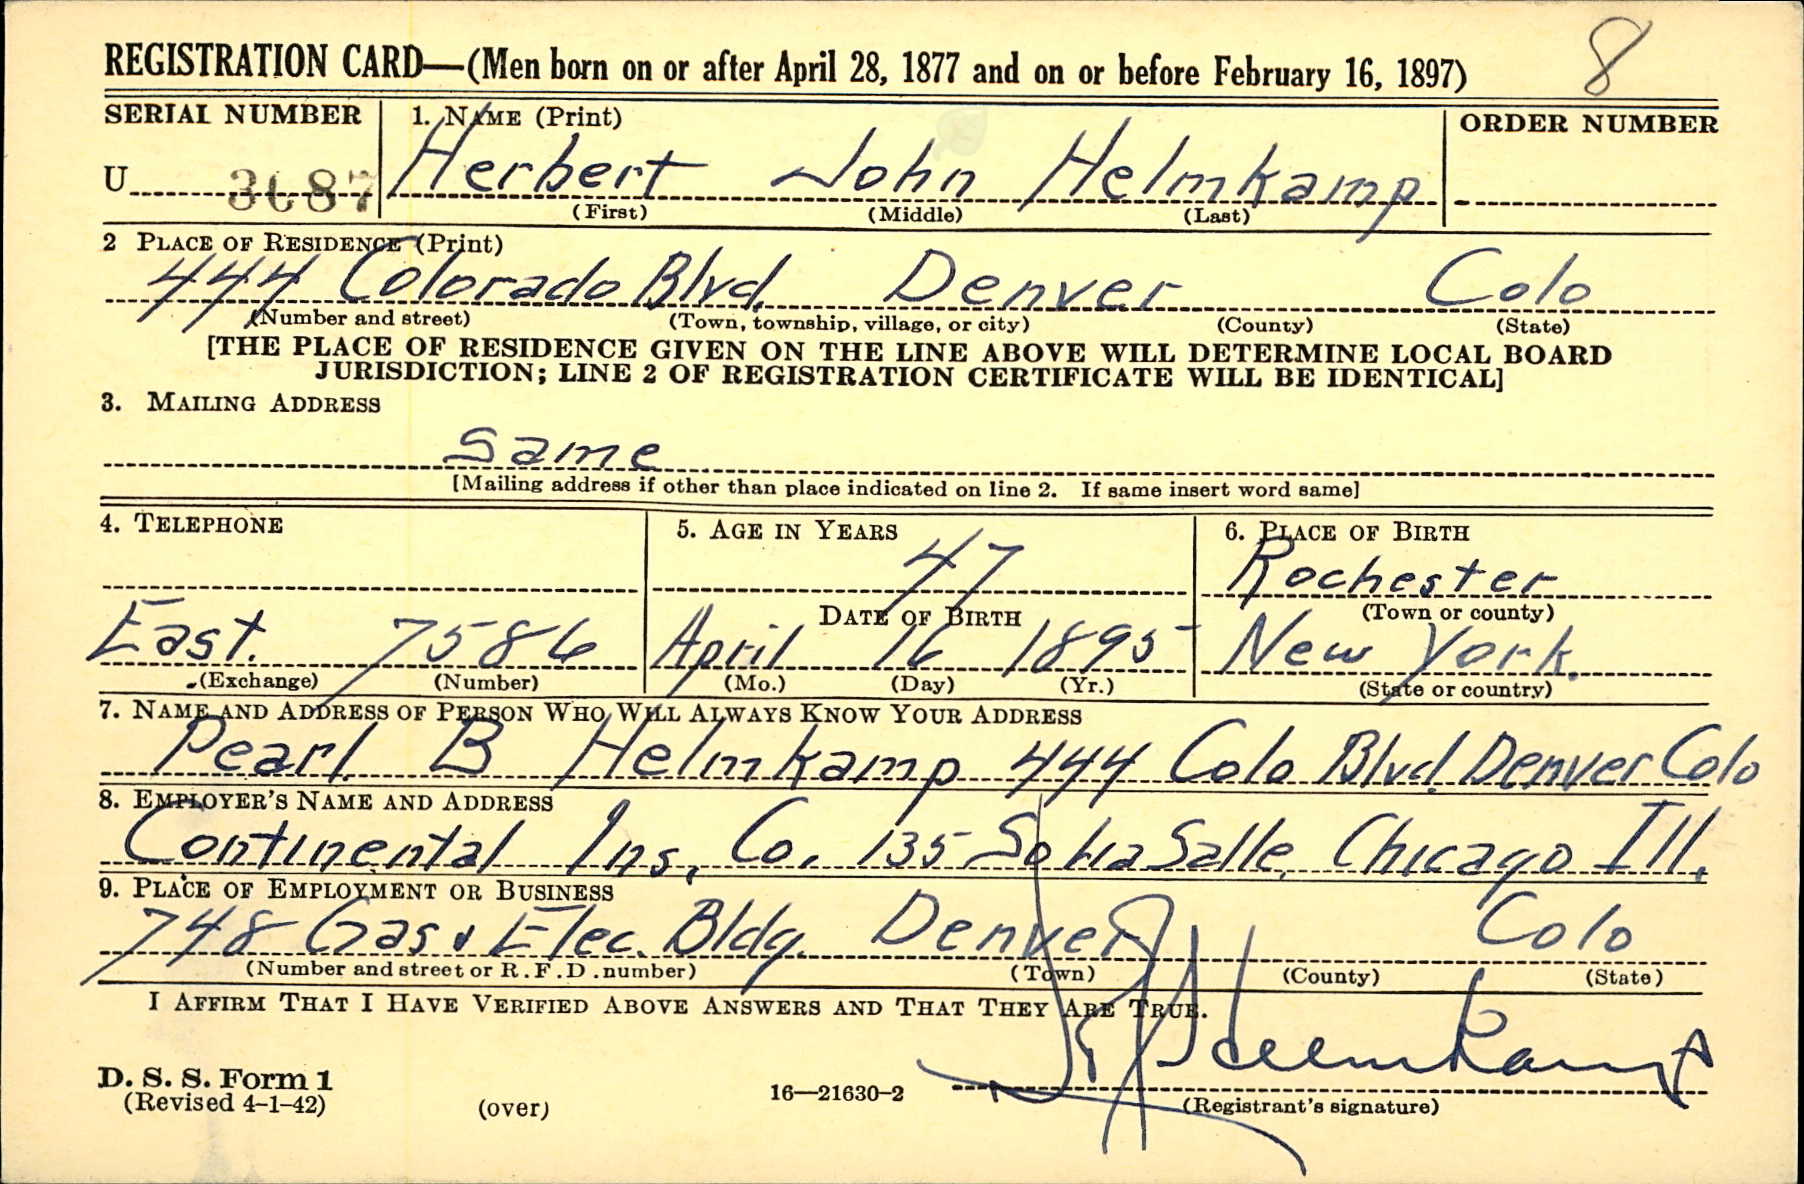 8
REGISTRATION CARD—(Men born on or after April 28, 1877 and on or before February 16, 1897)
SERIAL NUMBER
1. NAME (Print)
ORDER NUMBER
U 3087
Herbert John Helmkamp
(First) (Middle) (Last)
2 PLACE OF RESIDENCE (Print)
444 Colorado Blvd. Denver Colo
(Number and street) (Town, township, village, or city) (County) (State)
[THE PLACE OF RESIDENCE GIVEN ON THE LINE ABOVE WILL DETERMINE LOCAL BOARD
JURISDICTION; LINE 2 OF REGISTRATION CERTIFICATE WILL BE IDENTICAL]
3. MAILING ADDRESS
Same
[Mailing address if other than place indicated on line 2. If same insert word same]
4. TELEPHONE
5. AGE IN YEARS
6. PLACE OF BIRTH
47
Rochester
DATE OF BIRTH
(Town or county)
East. 7586
April 16 1895
New York.
(Exchange) (Number)
(Mo.) (Day) (Yr.)
(State or country)
7. NAME AND ADDRESS OF PERSON WHO WILL ALWAYS KNOW YOUR ADDRESS
Pearl B Helmkamp 444 Colo Blvd. Denver Colo
8. EMPLOYER'S NAME AND ADDRESS
Continental Ins. Co. 135 So LaSalle, Chicago Ill.
9. PLACE OF EMPLOYMENT OR BUSINESS
748 Gas & Elec. Bldg. Denver Colo
(Number and street or R.F.D. number) (Town) (County) (State)
I AFFIRM THAT I HAVE VERIFIED ABOVE ANSWERS AND THAT THEY ARE TRUE.
D. S. S. Form 1
(Revised 4-1-42)
(over)
16—21630-2
HJHelmkamp
(Registrant's signature)